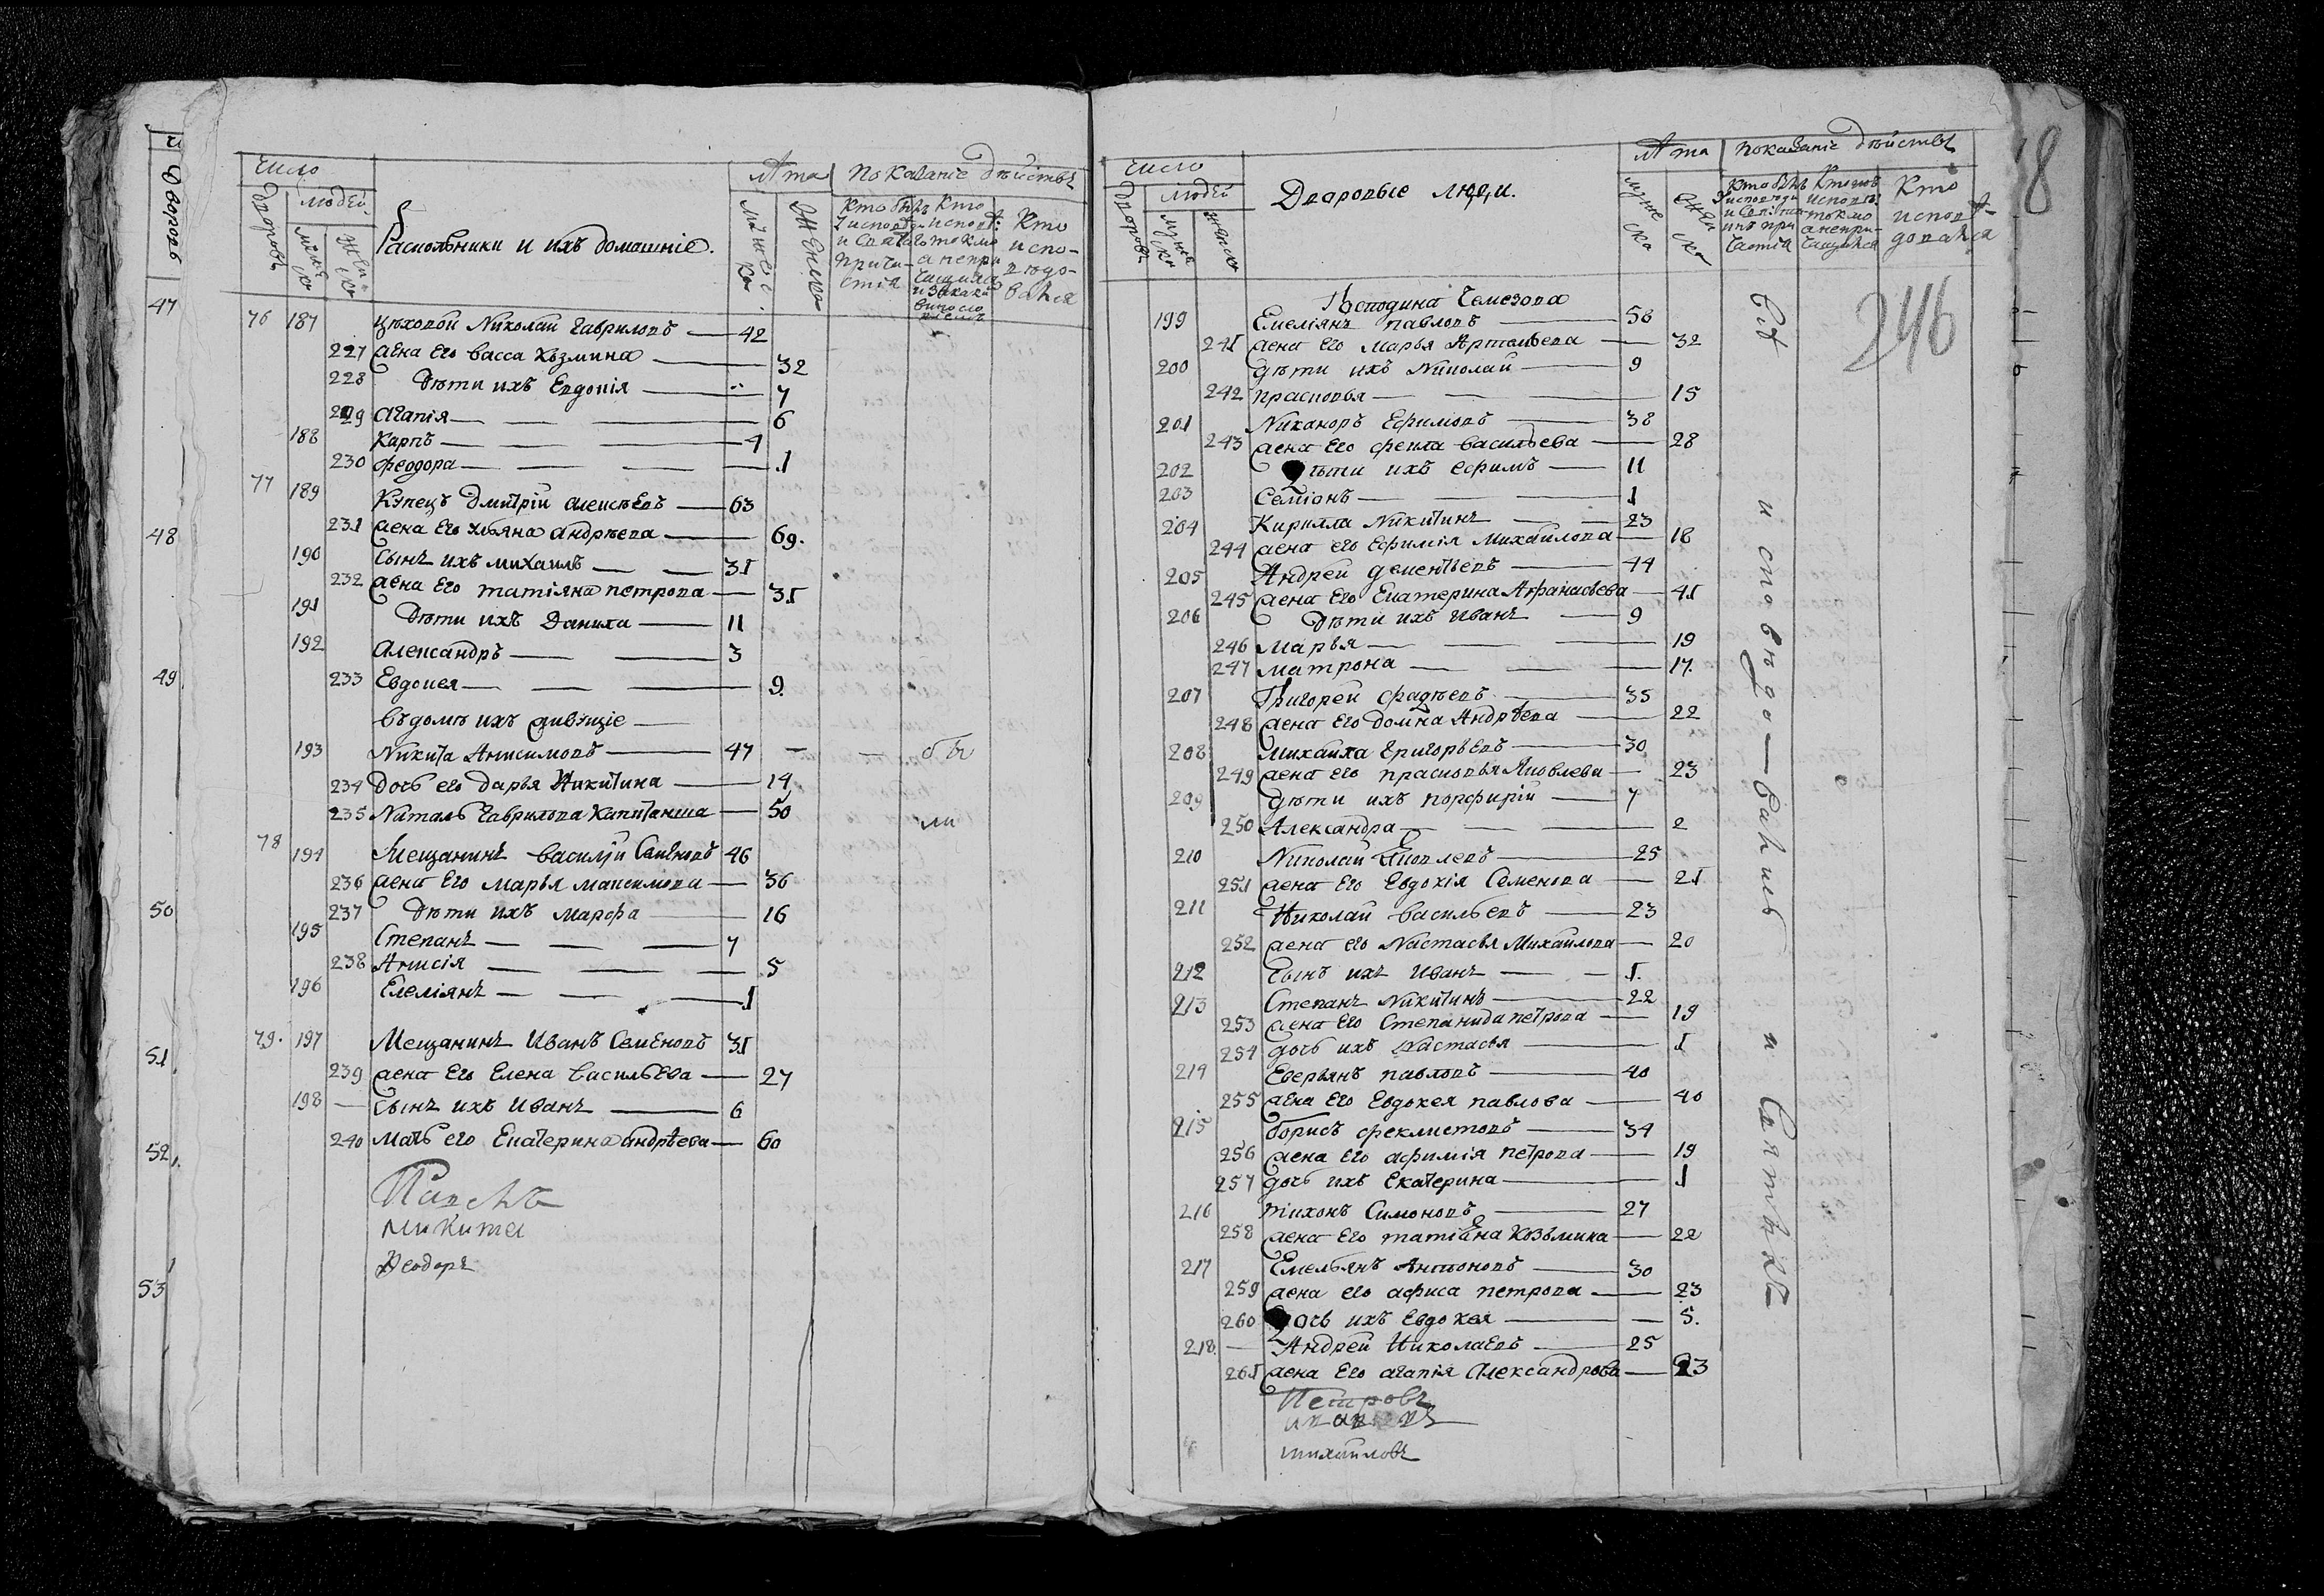 Дворовъ
47
48
49
50
51
52
53
Число
Дворовъ
Людей
мужеско
женско
Раскольники и ихъ домашніе.
Лѣта
мужеско
женско
Показаніе дѣйствъ
Кто былъ у исповѣди и святаго причастія
Кто исповѣд: токмо а не причащался и за какимъ винословіемъ
Кто не исповѣдовался
76 187 цѣховой Николай Гавриловъ — 42
227 жена его Васса Козмина — 32
228 дѣти ихъ Евдокія — 7
229 Агапія — 6
188 Карпъ — 4
230 Феодора — 1
77 189 Купецъ Дмитрій Алексѣевъ — 63
231 жена его Ульяна Андрѣева — 69.
190 Сынъ ихъ Михаилъ — 31
232 жена его Татіяна Петрова — 31
191 Дѣти ихъ Данила — 11
192 Александръ — 3
233 Евдокея — 9
Въ доме ихъ живущіе —
193 Никита Анисимовъ — 47 — —
234 Дочь его Дарья Никитина — 14
235 Наталь Гаврилова капитанша — 50
78 194 Мещанинъ Василіи Семеновъ 46
236 жена его Марья Максимова — 36
237 Дѣти ихъ Марфа — 16
195 Степанъ — 7
238 Анисія — 5
196 Емеліянъ — 1
79. 197 Мещанинъ Иванъ Семеновъ 31
239 жена его Елена Васильева — 27
198 — Сынъ ихъ Иванъ — 6
240 Мать его Екатерина Андрѣева — 60
Павелъ
Микита
Феодоръ
8
246
Число
Дворовъ
Людей
мужеско
женско
Дворовые люди.
Лѣта
мужеско
женско
Показаніе дѣйствъ
Кто былъ у исповѣди и святаго причастія
Кто исповѣд: токмо а не причащался
Кто не исповѣдовался
Господина Чемезова
199 Емеліянъ Павловъ — 58
241 жена его Марья Артемьева — 32
200 дѣти ихъ Николай — 9
242 Прасковья — 15
201 Никаноръ Ефимовъ — 38
243 жена его Фекла Васильева — 28
202 Дѣти ихъ Ефимъ — 11
203 Семіонъ — 1
204 Кирилла Никитинъ — 23
244 жена его Ефимія Михайлова — 18
205 Андрей Дементьевъ — 44
245 жена его Екатерина Афанасьева — 41
206 Дѣти ихъ Иванъ — 9
246 Марья — 19
247 Матрона — 17.
207 Григорей Фадѣевъ — 35
248 жена его Домна Андрѣева — 22
208 Михайла Григорьевъ — 30
249 жена его Прасковья Яковлева — 23
209 Дѣти ихъ Порфирій — 7
250 Александра — 2
210 Николай Яковлевъ — 25
251 жена его Евдокія Семенова — 21
211 Николай Васильевъ — 23
252 жена его Настасья Михайлова — 20
212 Сынъ ихъ Иванъ — 1.
213 Степанъ Никитинъ — 22
253 жена его Степанида Петрова — 19
254 дочь ихъ Настасья — 1
214 Еверьянъ Павловъ — 40
255 жена его Евдокея Павлова — 40
215 Борисъ Феклистовъ — 34
256 жена его Афимія Петрова — 19
257 дочь ихъ Екатерина — 1
216 Тихонъ Симоновъ — 27
258 жена его Татіана Козьмина — 22
217 Емельянъ Антоновъ — 30
259 жена его Афиса Петрова — 23
260 Дочь ихъ Евдокея — 5.
218. — Андрей Николаевъ — 25
261 жена его Агапія Александрова — 23
Петровъ
Михайловъ
Всѣ исповѣдовались и Святыхъ